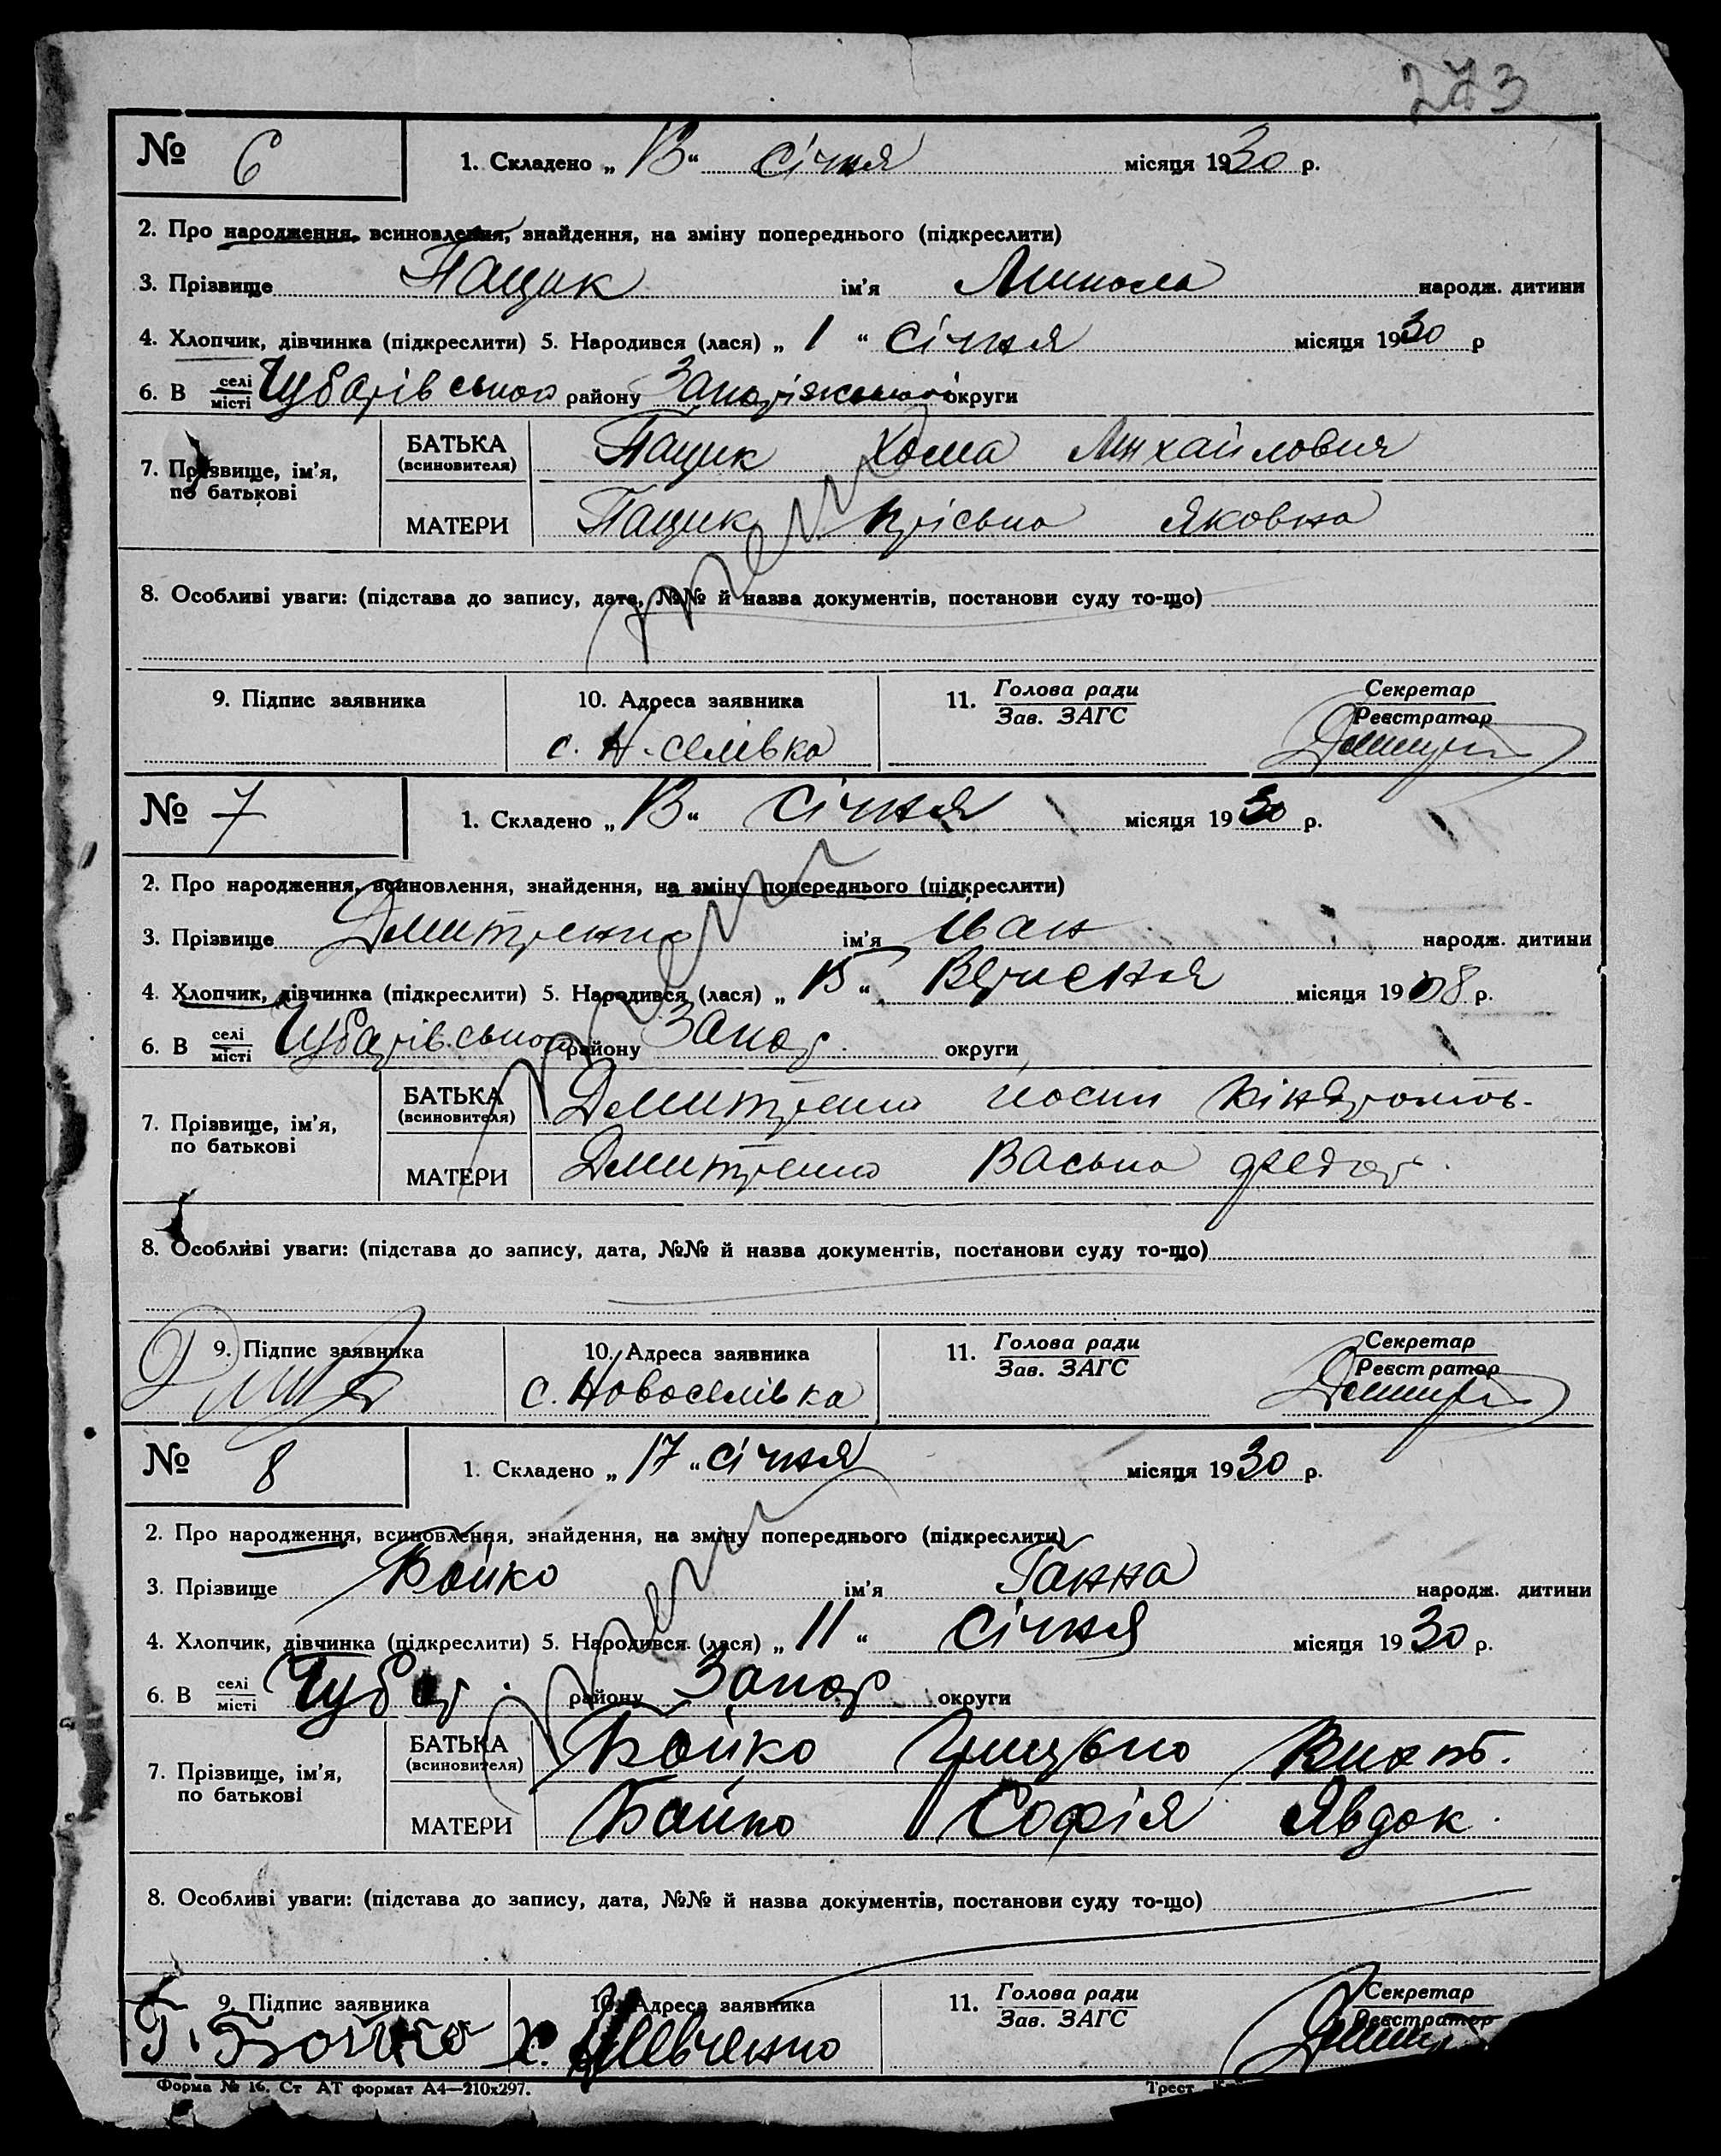 273
№ 6 1. Складено „ 13 “ січня місяця 1930 р.
2. Про народження, всиновлення, знайдення, на зміну попереднього (підкреслити)
3. Прізвище Пащик ім'я Микола народж. дитини
4. Хлопчик, дівчинка (підкреслити) 5. Народився (лася) „ 1 “ січня місяця 1930 р
6. В селі місті Чубарівського району Запоріжської округи
7. Прізвище, ім'я, по батькові БАТЬКА (всиновителя) Пащик Хома Михайлович
МАТЕРИ Пащик Пріська Яковна
8. Особливі уваги: (підстава до запису, дата, №№ й назва документів, постанови суду то-що)
9. Підпис заявника 10. Адреса заявника 11. Голова ради Зав. ЗАГС Секретар Реєстратор
с. Н-селівка
№ 7 1. Складено „ 13 “ січня місяця 1930 р.
2. Про народження, всиновлення, знайдення, на зміну попереднього (підкреслити)
3. Прізвище Дмитренко ім'я Іван народж. дитини
4. Хлопчик, дівчинка (підкреслити) 5. Народився (лася) „ 13 “ Вересня місяця 1908 р.
6. В селі місті Чубарівського району Запор. округи
7. Прізвище, ім'я, по батькові БАТЬКА (всиновителя) Дмитренко Йосип Кіндратов-
МАТЕРИ Дмитренко Васька Федор.
8. Особливі уваги: (підстава до запису, дата, №№ й назва документів, постанови суду то-що)
9. Підпис заявника 10. Адреса заявника 11. Голова ради Зав. ЗАГС Секретар Реєстратор
с. Новоселівка
№ 8 1. Складено „ 17 “ січня місяця 1930 р.
2. Про народження, всиновлення, знайдення, на зміну попереднього (підкреслити)
3. Прізвище Бойко ім'я Ганна народж. дитини
4. Хлопчик, дівчинка (підкреслити) 5. Народився (лася) „ 11 “ січня місяця 1930 р.
6. В селі місті Чубар. району Запор округи
7. Прізвище, ім'я, по батькові БАТЬКА (всиновителя) Бойко Грицько
МАТЕРИ Бойко Софія Явдок.
8. Особливі уваги: (підстава до запису, дата, №№ й назва документів, постанови суду то-що)
9. Підпис заявника 10. Адреса заявника 11. Голова ради Зав. ЗАГС Секретар Реєстратор
Г. Бойко х. Шевченко
Форма № 16. Ст АТ формат А4—210х297. Трест